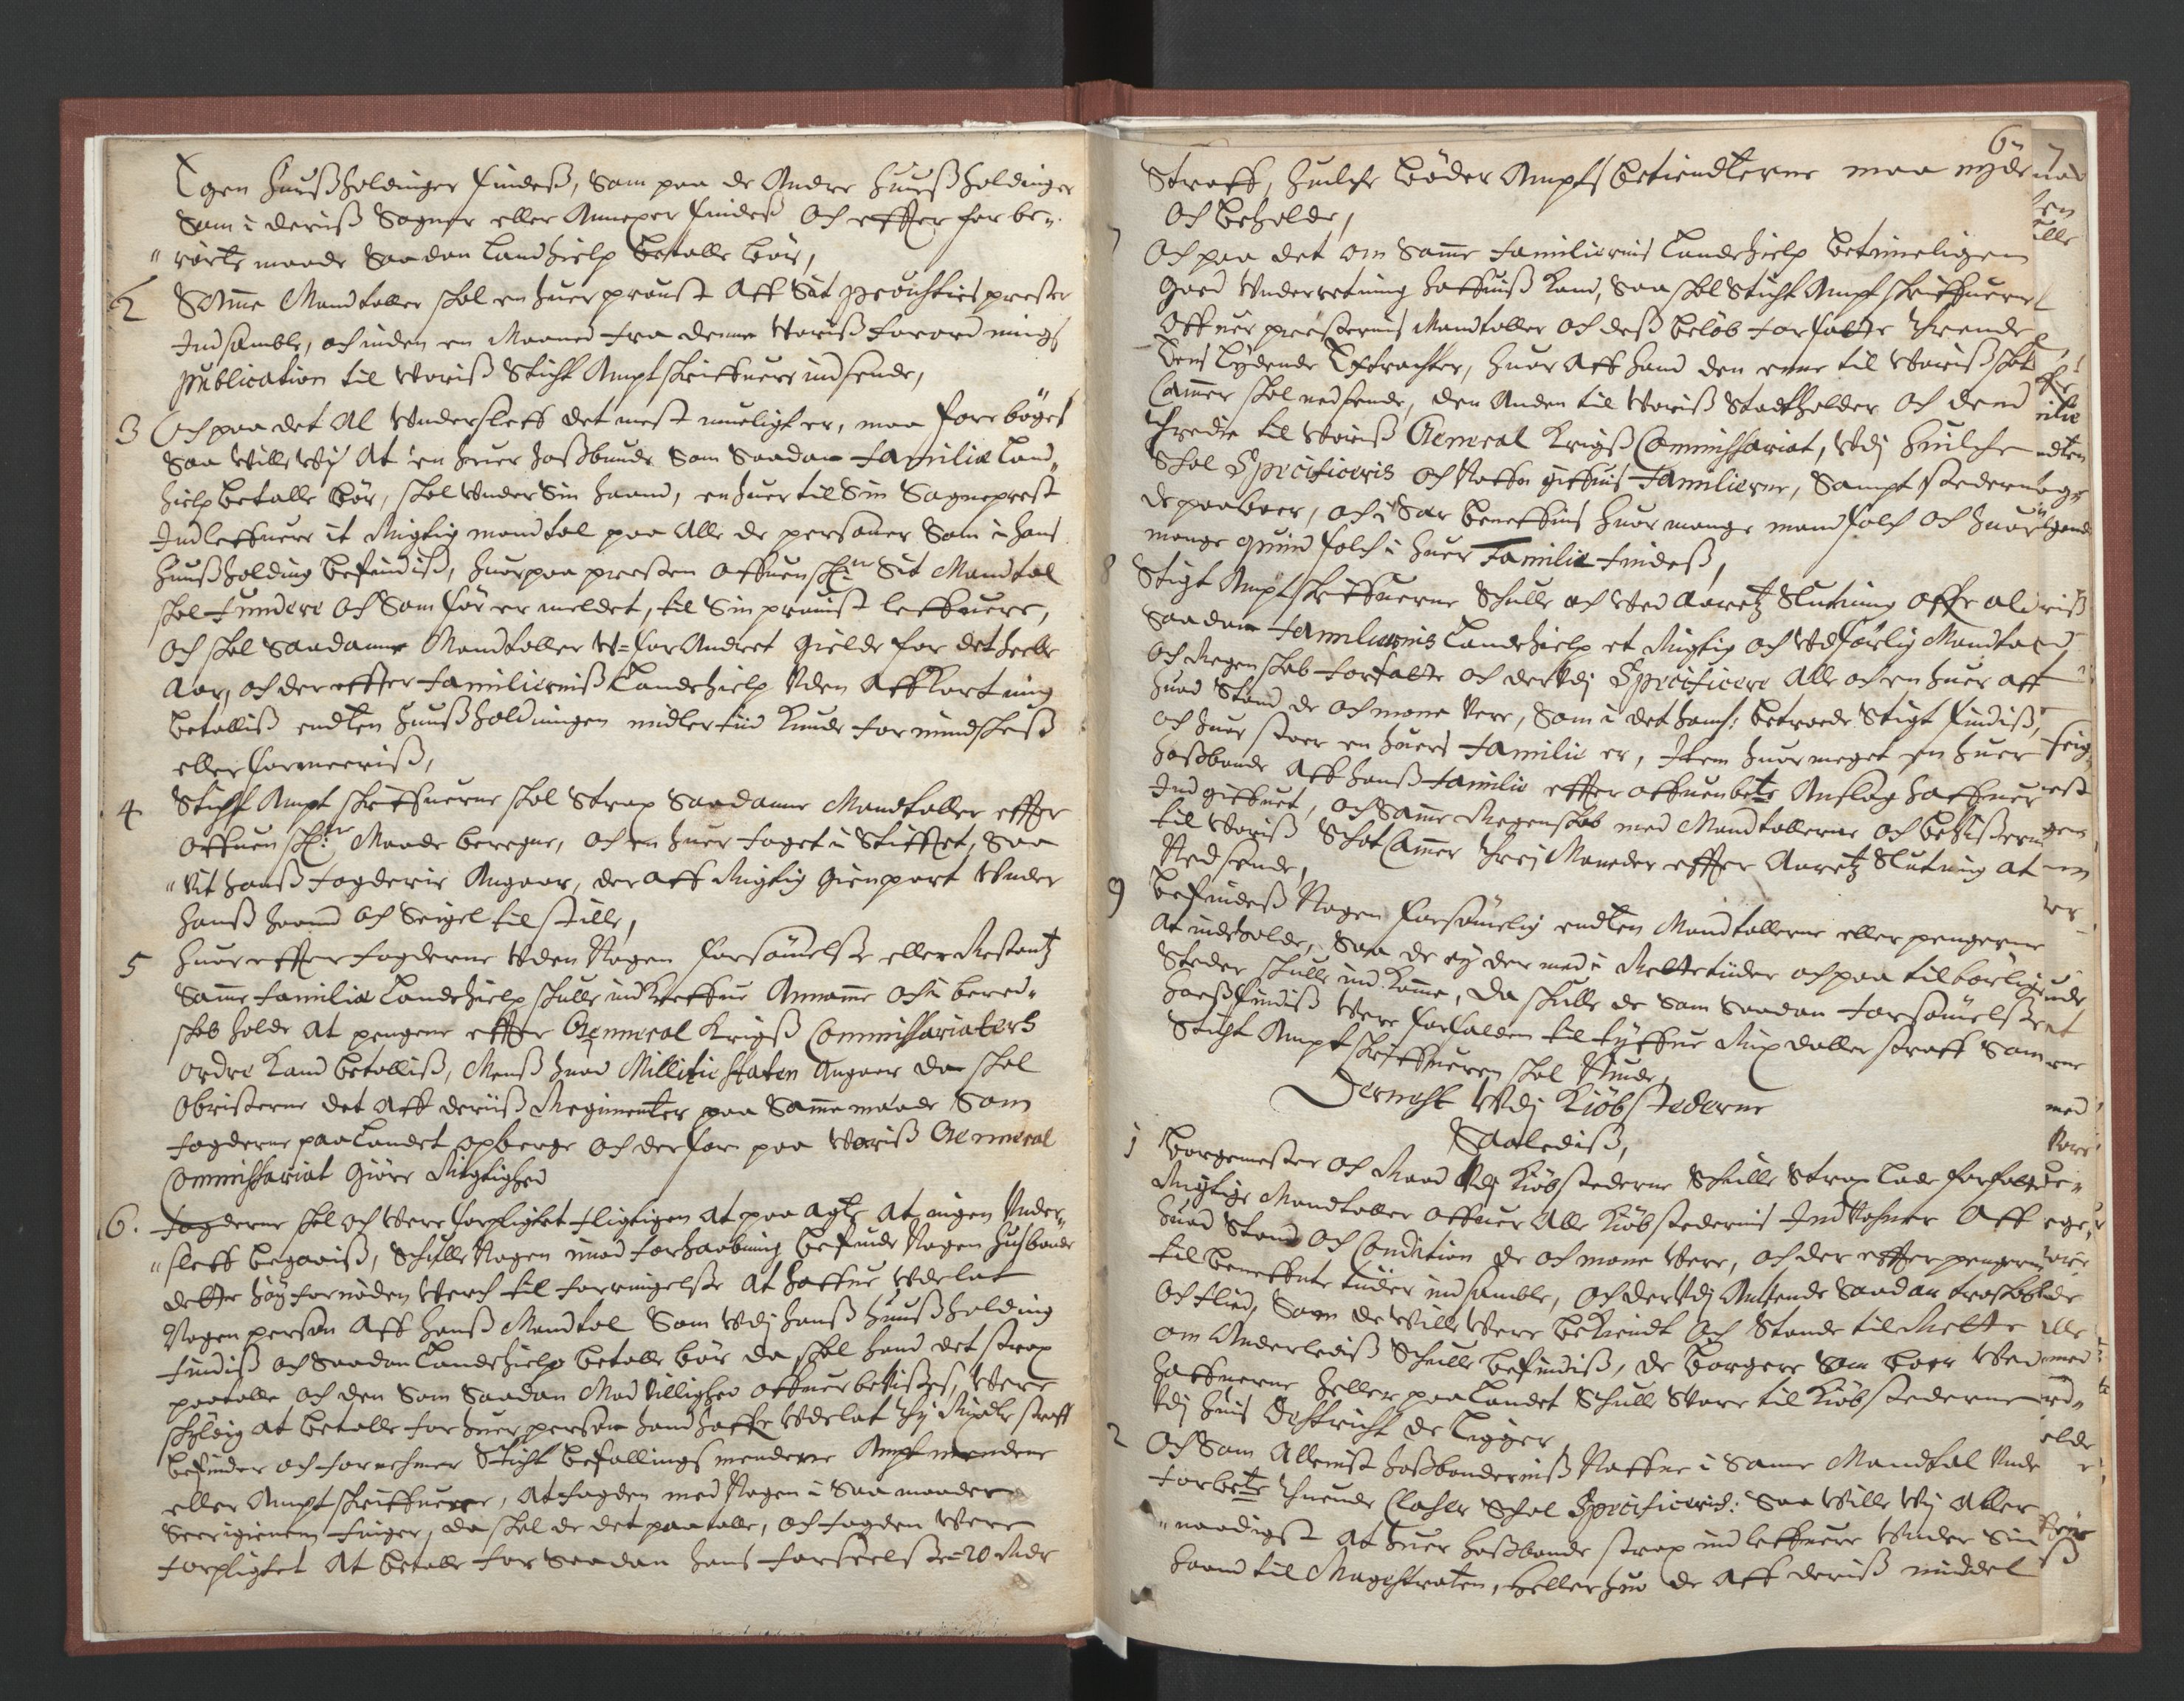 Egen Huußholdinger findeß, Som paa de Andre Huußholdinger
Som i deriß Sogner eller Annexer findeß Och effter forbe„
„rörte maade Saadan Landhielp betalle bör,
2 Samme Mandtaller skal en huer proust Aff Sit Prousties prester
Indsamble, och inden en Maaned fra denne Voriß Forordnings
Publication til Voriß Sticht Amptskriffuere indsende,
3 Och paa det Al Undersleff det mest mueligt er, maa foreböges
Saa Ville Vi At en huer Hoßbunde Som Saadan Familie Land„
hielp betalle bör, skal Under Sin haand, en huer til Sin Sogneprest
Indleffuere it Rigtig mandtal paa Alle de personer Som i hans
Huußholding befindiß, huorpaa presten offuenschr: Sit Mandtal
skal Fundere Och Som för er meldet, til Sin prouist leffuere,
Och skal Saadanne Mandtaller U=forAndret Gielde for det heele
Aar, och der effter Familierniß Landehielp Uden Affkortning
betalliß endten Huußholdningen midlertiid Kunde Formindskeß
eller formeeriß,
4 Sticht Ampt skriffuerne skal Strax Saadanne Mandtaller effter
Offuenschr: Maade beregne, och en huer Foget i Stifftet, Saa
„vit hanß Fogderie Angaar, der aff Rigtig Gienpart Under
hanß haand Och Seigel tilstille,
5 Huor effter Fogderne Uden Nogen forsömelße eller Restantz
Samme Familie Landehielp skulle indkreffue Annamme Och i bered„
skab holde At pengene effter General Krigß Commissariaters
Ordre Kand betalliß, Menß huad Millitie staten Angaar da skal
Obristerne det Aff deriiß Regimenter paa Samme maade Som
Fogderne paa Landet opberge Och der for paa Voriß General
Commissariat Giöre Rigtighed
6. Fogderne skal och Vere forpligtet fligtigen At paa agte At ingen Under„
„sleff begaaiß, Schulle Nogen imod Forhaabning befinde Nogen Husbonde
dette höy fornöden Verch til Forringelße At haffue Udelat
Nogen person Aff hanß Mandtal Som Udj hanß Huußholding
Findiß Och Saadan Landehielp betalle bör da skal hand det strax
paatalle och den Som Saadan Modvillighed offuerbevißes, Vere
skyldig At betalle for huer person hand haffr Udelat Ty Rixdlr straff
befinder och fornehmer Sticht befallingsmendene Amptmendene
eller Ampt skriffuerne, At Fogden med Nogen i Saa maader
Seerigiennem Finger, da skal de det paatalle, och Fogden Vere
Forpligtet At betalle for Saadan hans Forseelße 20 Rdr
6
Straff, Huilche böder Ampts betiendterne maa nyde
Och beholde,
7 Och paa det om Samme Familiernis Landehielp betimeligen
Goed Underretning haffuiß Kand, Saa skal Sticht Ampt skriffuerne
Offuer presternis Mandtaller och deß beløb forfatte Trende
Eens lydende Extracter, Huor Aff hand den eene til Voriß Skat
Cammer skal nedsende, den Anden til Voriß Stadtholder Och dend
Tredie til Voriß General Krigß Commissariat, Udj Huilche
Skal Specificeris Och Naffn giffuis Familierne, Sampt stederne
de paa boer, och i Sær beneffnis huor mange mandfolch Och huor
mange quindfolch i huer Familie Findeß,
8 Stigt Ampt skriffuerne Schulle och Ved Aaretz Slutning offr al
Saadan Familiernis Landehielp et Rigtig och Udförlig Mandtal
Och Regenskab forfatte och der Udj Specificere Alle och en huer aff
huad Stand de och mone Vere, Som i det ham: betroede Stigt findiß,
och huor stoer en huers Familie er, Item huor meget en huer
Hoßbonde Aff hanß Familie effter offuenbete Anslag haffuer
Indgiffuet, och Samme Regenskab med Mandtallerne och beviserne
til Voriß Schat Cammer Trej Maaneder effter Aaretz Slutning at
Nedsende,
9 Befindeß Nogen forsömelig endten Mandtallerne eller pengerne
At indeholde, Saa de ey dermed i Rette tiider och paa tilbörlige
Steder skulle indkomme, da skulle de Som Saadan Forsömelße
hoeß findiß Vere forfalden til tyffue Rixdaller straff Som
Sticht Ampt skriffueren skal Niude,
Dernest Udj Kiöbstederne
Saalediß,
1 Borgemester Och Raad Udj Kiöbstederne Schulle Strax lade forfatte
Rigtige Mandtaller offuer Alle Kiöbstedernis Indvohner Aff
huad Stand Och Condition de och mone Vere, och der effter pengerne
til beneffnte tiider indsamble, Och der Udj Anvende Saadan troskab
Och fliid, Som de Ville Vere bekiendt Och Stande til Rette
om Anderlediß Schulle befindiß, de borgere Som boer Ved
Haffnerne heller paa Landet Schulle Svare til Kiöbstederne
Udj huis Districht de Ligger
2 Och Som Allenist Hoßbonderniß Naffne i Samme Mandtal Unde
Forbete Tuende Classer Schal Specificeris: Saa Ville Vi Aller
„naadigst At huer Hoßbonde strax indleffuere Under Sin
haand til Magistraten, heller huo de Aff deriß middel